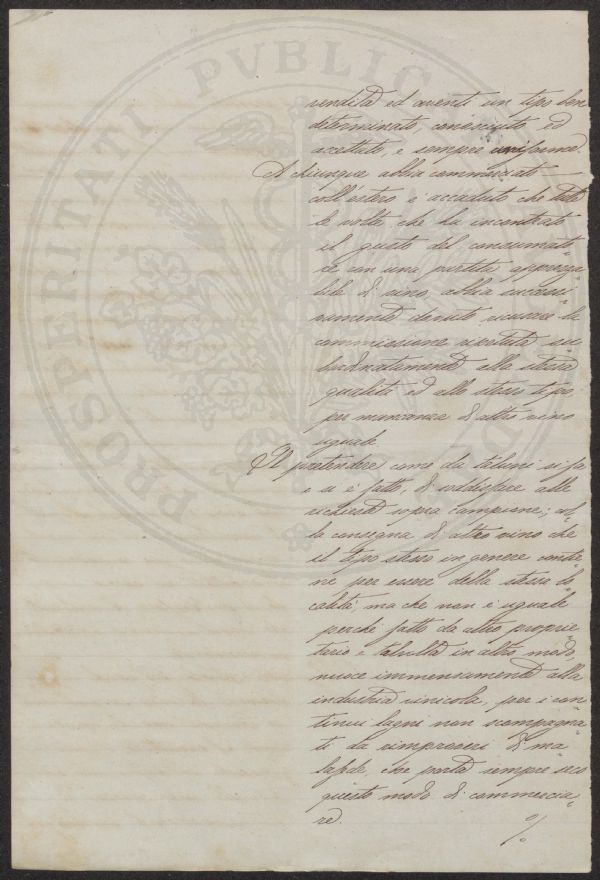 PROSPERITATI PVBLICAE
vendita ed aventi un tipo ben
determinato, conosciuto ed
accettato, e sempre uniforme.
A chiunque abbia commerciato
coll'estero è accaduto che tutte
le volte che ha incontrato
il gusto del consumato=
re con una partita apprezza
bile di vino, abbia successi=
vamente dovuto ricusare la
commissione avuta su
bordinatamente alla stessa
qualità ed allo stesso tipo,
per mancanza di altro vino
uguale.
Il pretendere come da taluni si fa
e si è fatto, di soddisfare alle
richieste sopra campione, col=
la consegna di altro vino che
il tipo stesso in genere contie=
ne per essere della stessa lo=
calità, ma che non è uguale
perchè fatto da altro proprie=
tario e talvolta in altro modo,
nuoce immensamente alla
industria vinicola, per i con=
tinui lagni non scompagna=
ti da rimproveri di ma=
lafede, che porta sempre seco
questo modo di commercia=
re.
%